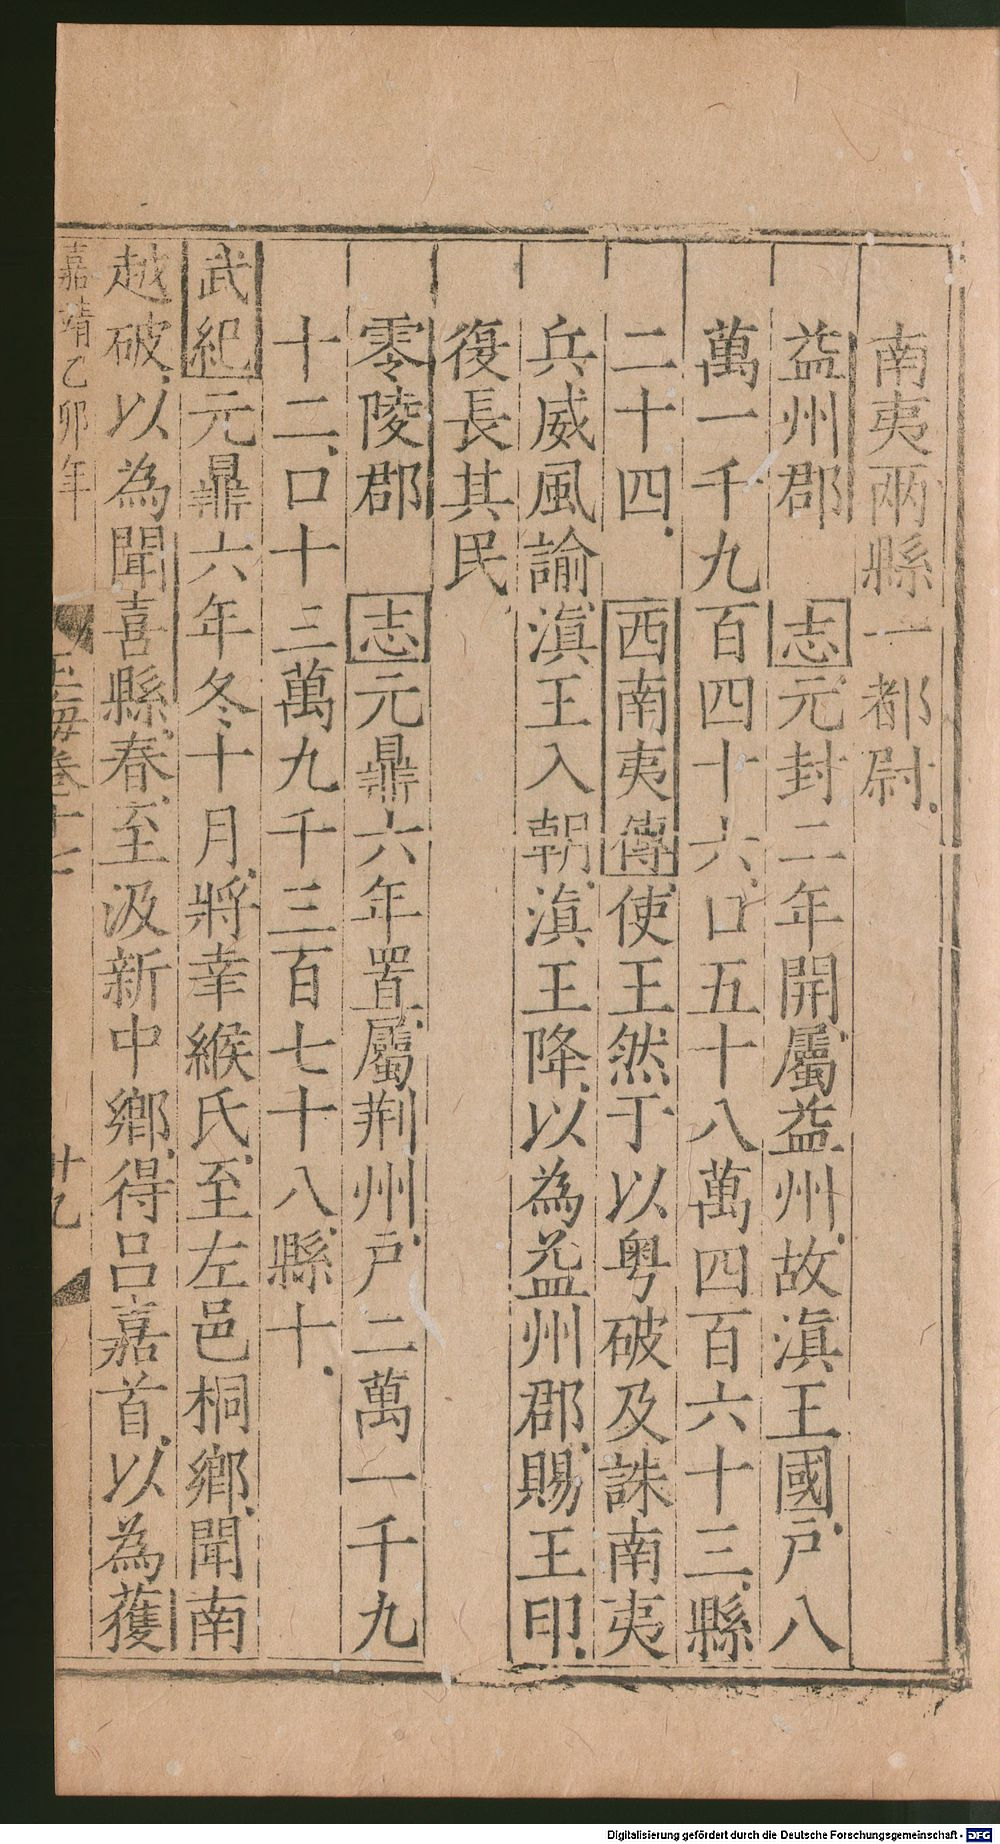 南夷兩縣一都尉
益州郡 志元封二年開屬益州故滇王國戶八
萬一千九百四十六口五十八萬四百六十三縣
二十四西南夷傳使王然于以粤破及誅南夷
兵威風諭滇王入朝滇王降以為益州郡賜王印
復長其民
零陵郡 志元鼎六年置屬荆州戶二萬一千九
十二口十三萬九千三百七十八縣十
武紀元鼎六年冬十月將幸緱氏至左邑桐鄉聞南
越破以為聞喜縣春至汲新中鄉得呂嘉首以為獲
嘉靖乙卯年 玉海卷十七 十九
Digitalisierung gefördert durch die Deutsche Forschungsgemeinschaft - DFG